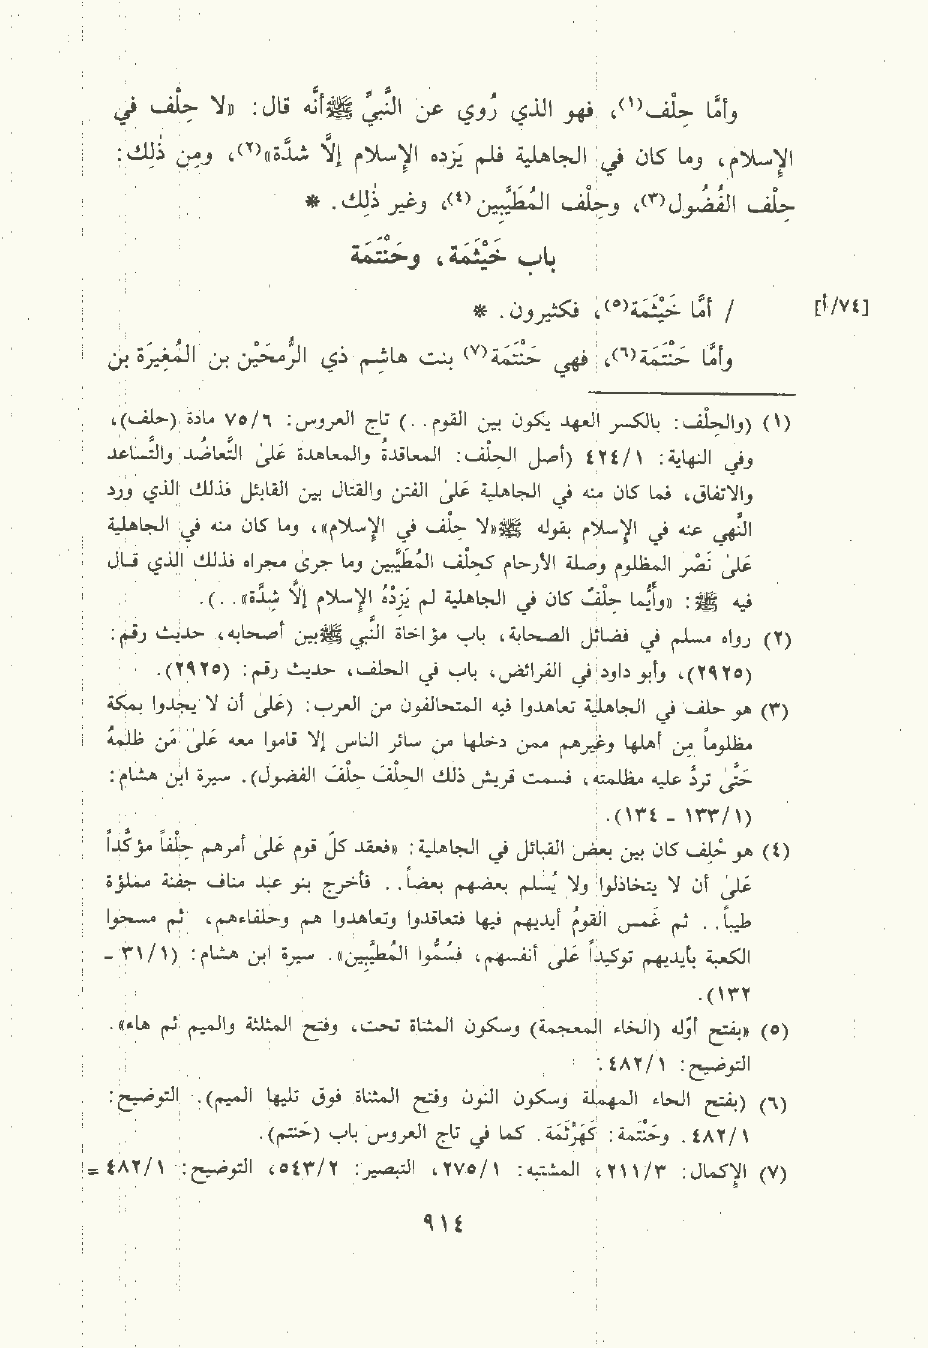 وأمَّا حِلْف(١)، فهو الذي رُوي عن النَّبيِّ ﷺ أنَّه قال: «لا حِلْف في
الإِسلام، وما كان في الجاهلية فلم يَزِده الإِسلام إلَّا شدَّة»(٢)، ومِن ذٰلِك:
حِلْف الفُضُول(٣)، وحِلْف المُطَيَّبِين(٤)، وغير ذٰلِك. *
باب خَيْثَمَة، وحَنْتَمَة
[٧٤/أ] / أمَّا خَيْثَمَة(٥)، فكثيرون. *
وأمَّا حَنْتَمَة(٦)، فهي حَنْتَمَة(٧) بنت هاشِم ذي الرُّمحَيْن بن المُغِيَرة بن
(١) (والحِلْف: بالكسر العهد يكون بين القوم..) تاج العروس: ٧٥/٦ مادة (حلف)،
وفي النهاية: ٤٢٤/١ (أصل الحِلْف: المعاقدةُ والمعاهدة عَلىٰ التَّعاضُد والتَّساعد
والاتفاق، فما كان منه في الجاهلية عَلىٰ الفتن والقتال بين القبائل فذلك الذي ورد
النَّهي عنه في الإِسلام بقوله ﷺ «لا حِلْف في الإِسلام»، وما كان منه في الجاهلية
عَلىٰ نَصْر المظلوم وصلة الأرحام كحِلْف المُطَيَّبين وما جرىٰ مجراه فذلك الذي قال
فيه ﷺ: «وأيُّما حِلْف كان في الجاهلية لم يَزِدْهُ الإِسلام إلَّا شِدَّة»..).
(٢) رواه مسلم في فضائل الصحابة، باب مؤاخاة النَّبي ﷺ بين أصحابه، حديث رقم:
(٢٩٢٥)، وأبو داود في الفرائض، باب في الحلف، حديث رقم: (٢٩٢٥).
(٣) هو حلف في الجاهلية تعاهدوا فيه المتحالفون من العرب: (عَلىٰ أن لا يجدوا بمكة
مظلوماً مِن أهلها وغيرهم ممن دخلها من سائر الناس إلا قاموا معه عَلىٰ مَن ظلمهُ
حَتَّىٰ تردَّ عليه مظلمته، فسمت قريش ذلك الحِلْفَ حِلْفَ الفضول). سيرة ابن هشام:
(١٣٣/١ - ١٣٤).
(٤) هو حُلِف كان بين بعض القبائل في الجاهلية: «فعقد كلّ قوم عَلىٰ أمرهم حِلْفاً مؤكَّداً
عَلىٰ أن لا يتخاذلوا ولا يُسْلم بعضهم بعضاً.. فأخرج بنو عبد مناف جفنة مملؤة
طيباً.. ثم غَمس القومُ أيديهم فيها فتعاقدوا وتعاهدوا هم وحلفاءهم، ثم مسحوا
الكعبة بأيديهم توكيداً عَلى أنفسهم، فسُمُّوا المُطَيَّبِين». سيرة ابن هشام: (٣١/١ -
١٣٢).
(٥) «بفتح أوّله (الخاء المعجمة) وسكون المثناة تحت، وفتح المثلثة والميم ثم هاء».
التوضيح: ٤٨٢/١.
(٦) (بفتح الحاء المهملة وسكون النون وفتح المثناة فوق تليها الميم). التوضيح:
٤٨٢/١. وحَنْتَمة: كَهَرْثَمَة. كما في تاج العروس باب (حَنتم).
(٧) الإِكمال: ٢١١/٣، المشتبه: ٢٧٥/١، التبصير: ٥٤٣/٢، التوضيح: ٤٨٢/١ =
٩١٤